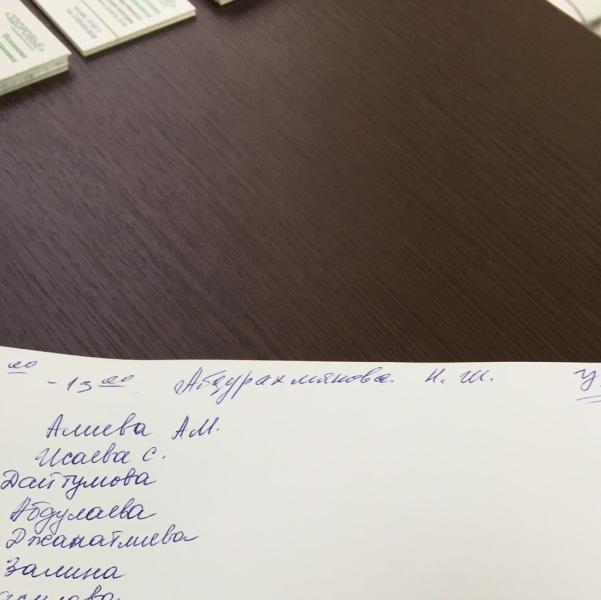 «ЗДОРОВЬЕ»
00 - 13 00 Абдурахманова. Н. Ш. У
Алиева А.М.
Исаева С.
Дайтумова
Абдулаева
Джанатлиева
Залина